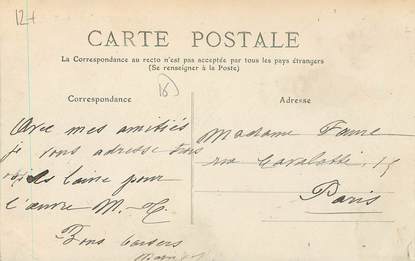 12+
CARTE POSTALE
La Correspondance au recto n'est pas acceptée par tous les pays étrangers
(Se renseigner à la Poste)
18
Correspondance
Adresse
Avec mes amitiés
je vous adresse trois
laine pour
l'œuvre M.
Bons baisers
Madame Faure
rue Cavalotti, 15
Paris